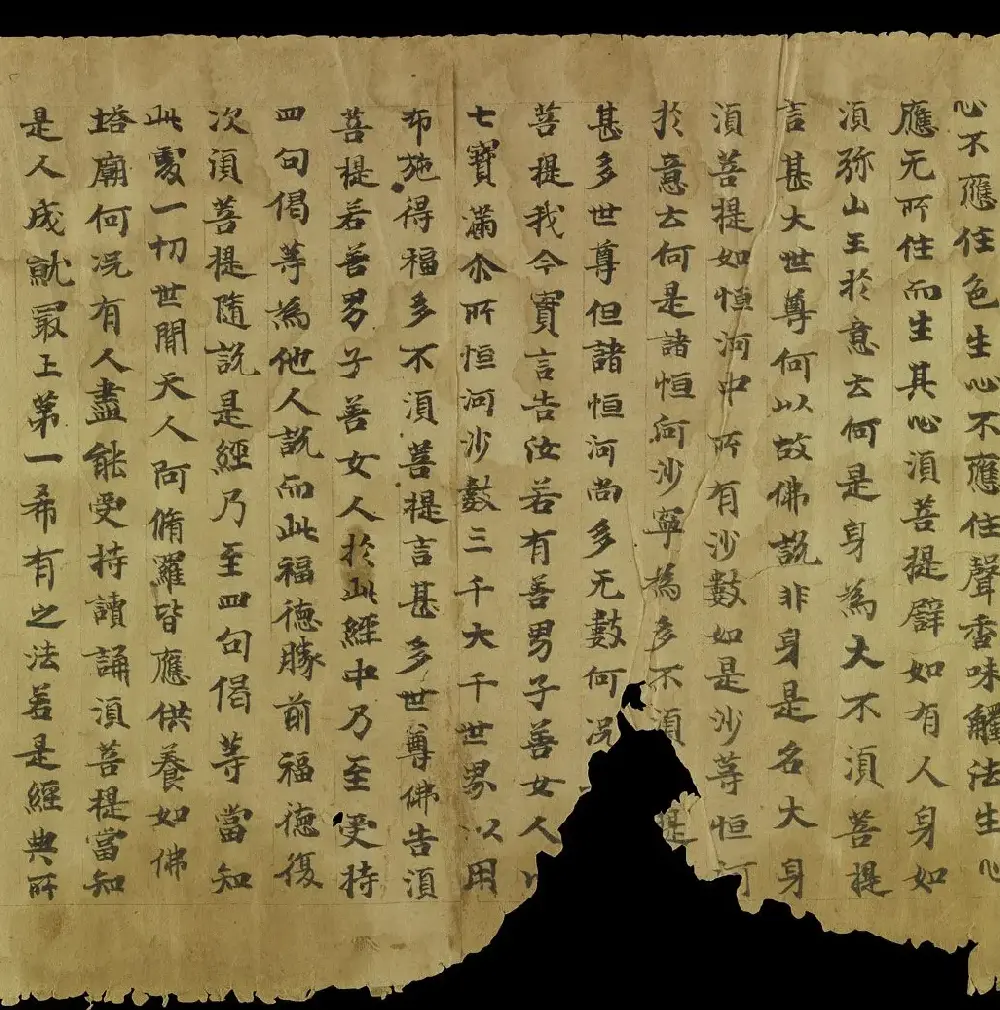 心不應住色生心不應住聲香味觸法生心
應无所住而生其心湏菩提辟如有人身如
湏弥山王於意云何是身為大不湏菩提
言甚大世尊何以故佛說非身是名大身
湏菩提如恒河中所有沙數如是沙等恒河
於意云何是諸恒河沙寧為多不湏提
甚多世尊但諸恒河尚多无數何況
菩提我今實言告汝若有善男子善女人以
七寶滿尒所恒河沙數三千大千世界以用
布施得福多不湏菩提言甚多世尊佛告湏
菩提若善男子善女人於此經中乃至受持
四句偈等為他人說而此福德勝前福德復
次湏菩提隨說是經乃至四句偈等當知
此處一切世間天人阿脩羅皆應供養如佛
塔廟何況有人盡能受持讀誦湏菩提當知
是人成就冣上第一希有之法若是經典所